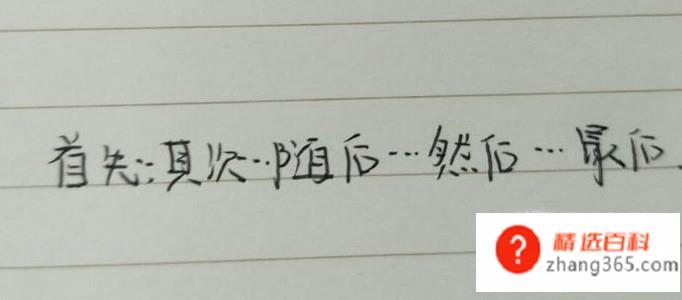 首先…其次…随后…然后…最后
精选百科
zhang365.com